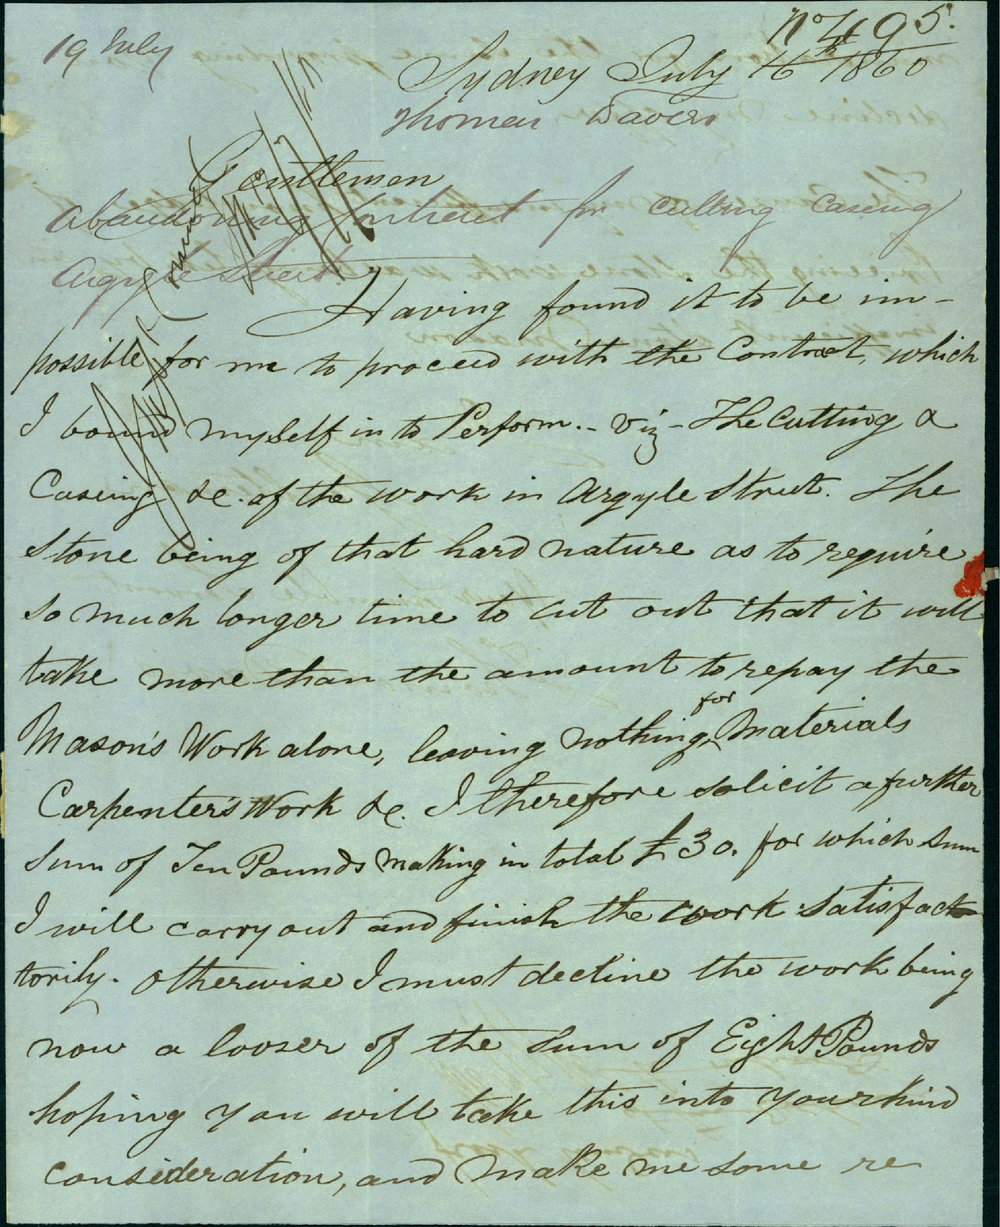 No 495.
19 July
Sydney July 16th 1860
Thomas Davies
Gentlemen
Abandoning Contract for cutting casing
Argyle Street.
Having found it to be im-
possible for me to proceed with the Contract, which
I bound myself in to Perform. - viz - The Cutting &
Caseing &c. of the work in Argyle Street. The
Stone being of that hard nature as to require
so much longer time to cut out that it will
take more than the amount to repay the
Mason's Work alone, leaving nothing for Materials
Carpenters Work &c. I therefore solicit a further
Sum of Ten Pounds making in total £30. for which sum
I will carry out and finish the work satisfac
torily. otherwise I must decline the work being
now a looser of the sum of Eight Pounds
hoping you will take this into your kind
consideration, and make me some re